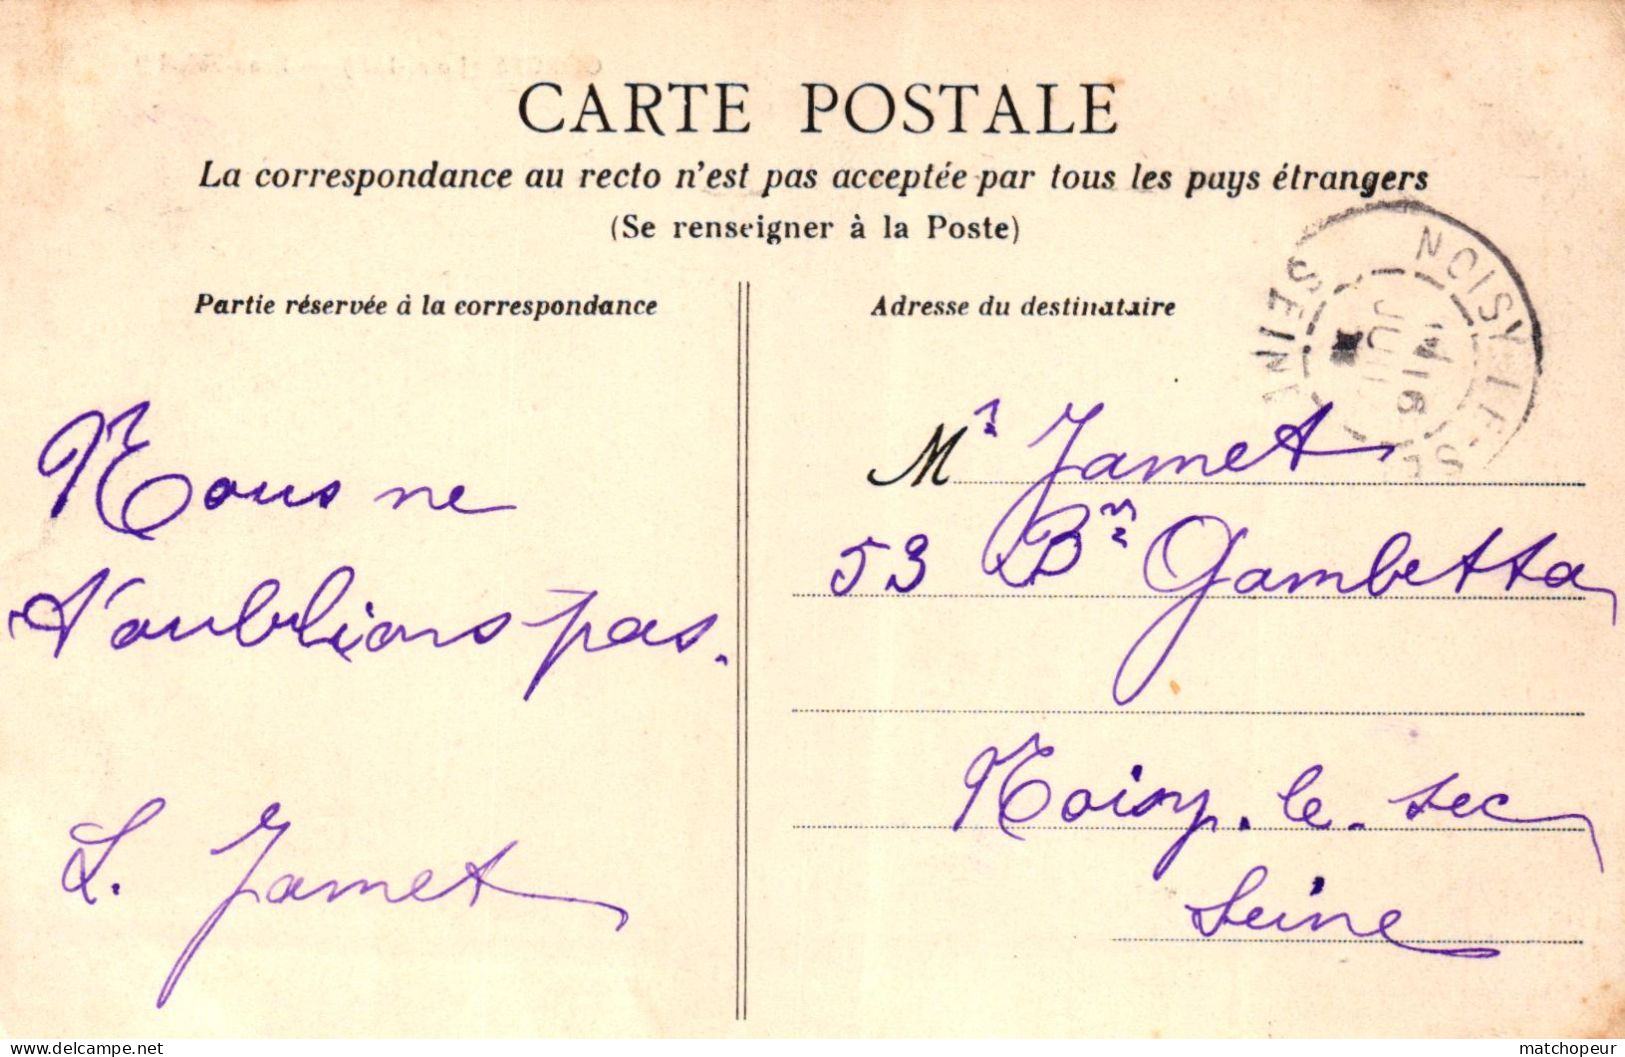 CARTE POSTALE
La correspondance au recto n'est pas acceptée par tous les pays étrangers
(Se renseigner à la Poste)
Partie réservée à la correspondance
Nous ne
t'oublions pas.
L. Jamet
Adresse du destinataire
NOISY-LE-SEC
SEINE
16
Mr Jamet
53 Bd Gambetta
Noisy-le-sec
Seine
delcampe.net
matchopeur